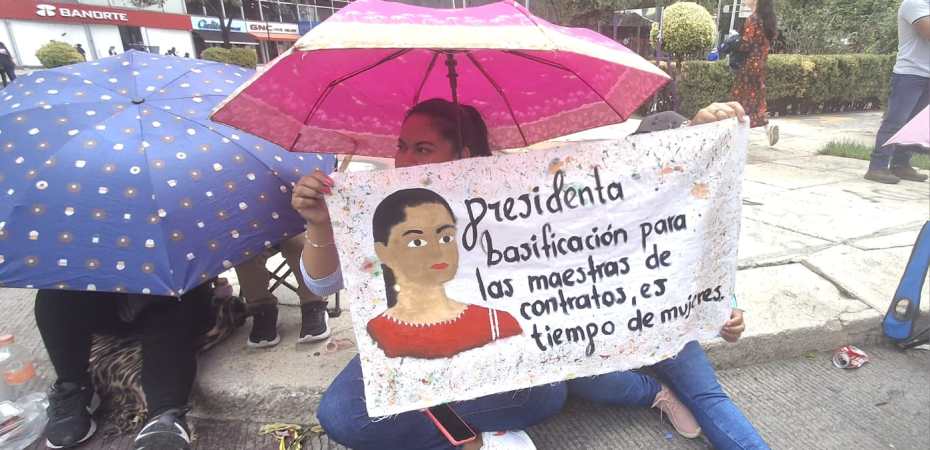 BANORTE
GNC
presidenta
basificación para
las maestras de
contratos, es
tiempo de mujeres.